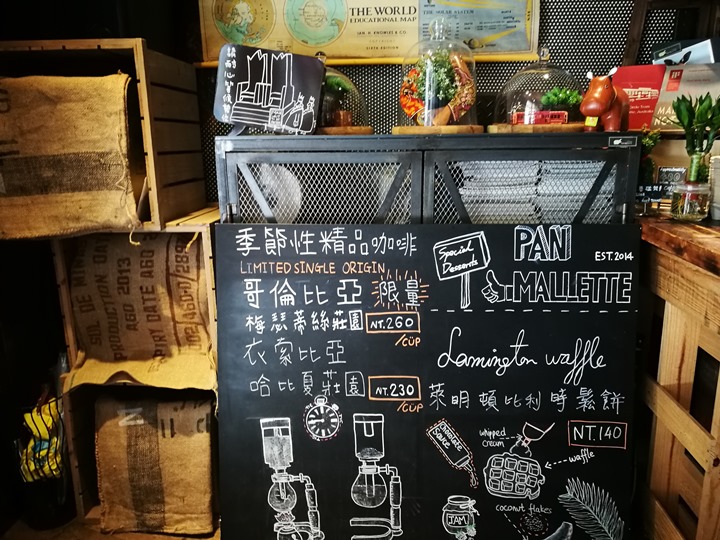 THE WORLD
EDUCATIONAL MAP
SIXTH EDITION
季節性精品咖啡
LIMITED SINGLE ORIGIN
哥倫比亞 限量
梅瑟蒂絲莊園 NT.260
/CUP
衣索比亞
哈比夏莊園 NT.230
/CUP
Special
Desserts
PAN
MALLETTE
EST.2014
Lamington waffle
萊明頓比利時鬆餅
NT.140
chocolate
sauce
whipped
cream
waffle
JAM
coconut flakes
PRODUCTION
AGO 2013
EXPIRY DATE AGO